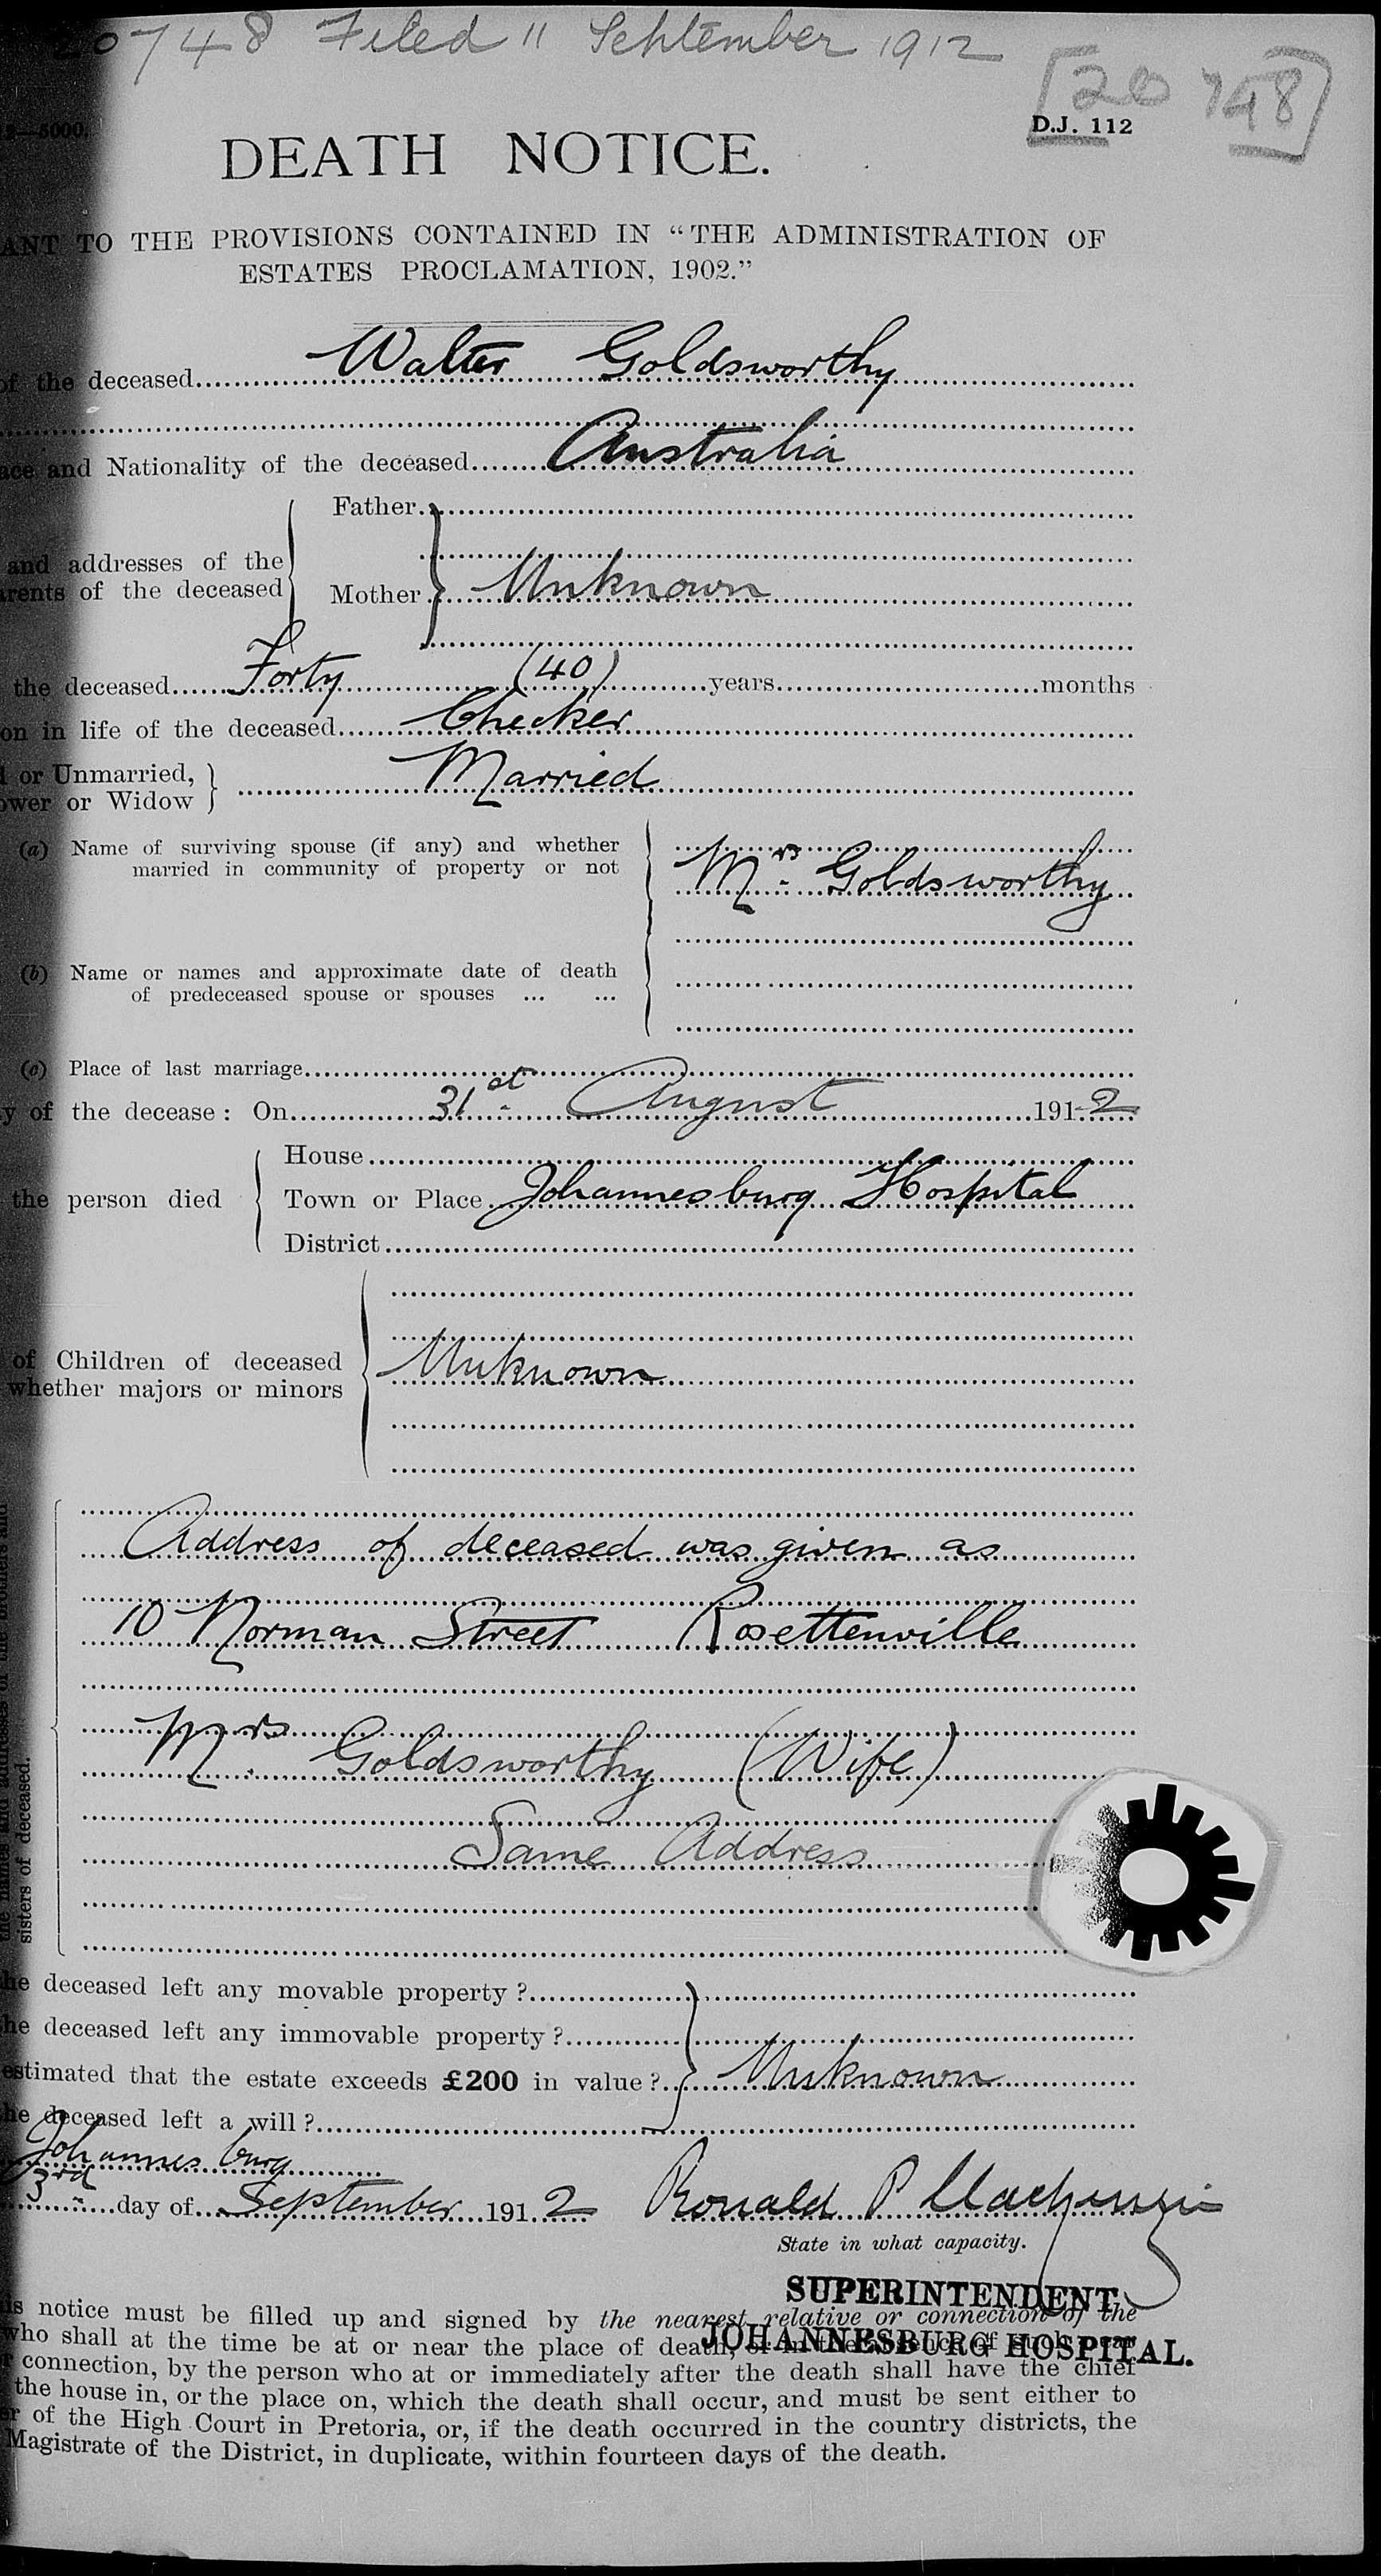 20748 Filed 11 September 1912
[20748]
—5000.
D.J. 112
DEATH NOTICE.
ANT TO THE PROVISIONS CONTAINED IN “THE ADMINISTRATION OF
ESTATES PROCLAMATION, 1902.”
of the deceased Walter Goldsworthy
ace and Nationality of the deceased Australia
Father
and addresses of the
arents of the deceased
Mother Unknown
the deceased Forty (40) years months
on in life of the deceased Checker
or Unmarried,
ower or Widow
Married
(a) Name of surviving spouse (if any) and whether
married in community of property or not
Mrs. Goldsworthy
(b) Name or names and approximate date of death
of predeceased spouse or spouses ... ...
(c) Place of last marriage
y of the decease: On 31st August 1912
House
the person died Town or Place Johannesburg Hospital
District
of Children of deceased
whether majors or minors
Unknown
the names and addresses of the brothers and
sisters of deceased.
Address of deceased was given as
10 Norman Street Rosettenville
Mrs. Goldsworthy (Wife)
Same Address
he deceased left any movable property?
he deceased left any immovable property?
estimated that the estate exceeds £200 in value? Unknown
he deceased left a will?
Johannesburg
3rd day of September 1912 Ronald P Mackenzie
State in what capacity.
SUPERINTENDENT
JOHANNESBURG HOSPITAL.
is notice must be filled up and signed by the nearest relative or connection of the
who shall at the time be at or near the place of death, or in the absence of such near
r connection, by the person who at or immediately after the death shall have the chief
the house in, or the place on, which the death shall occur, and must be sent either to
er of the High Court in Pretoria, or, if the death occurred in the country districts, the
Magistrate of the District, in duplicate, within fourteen days of the death.